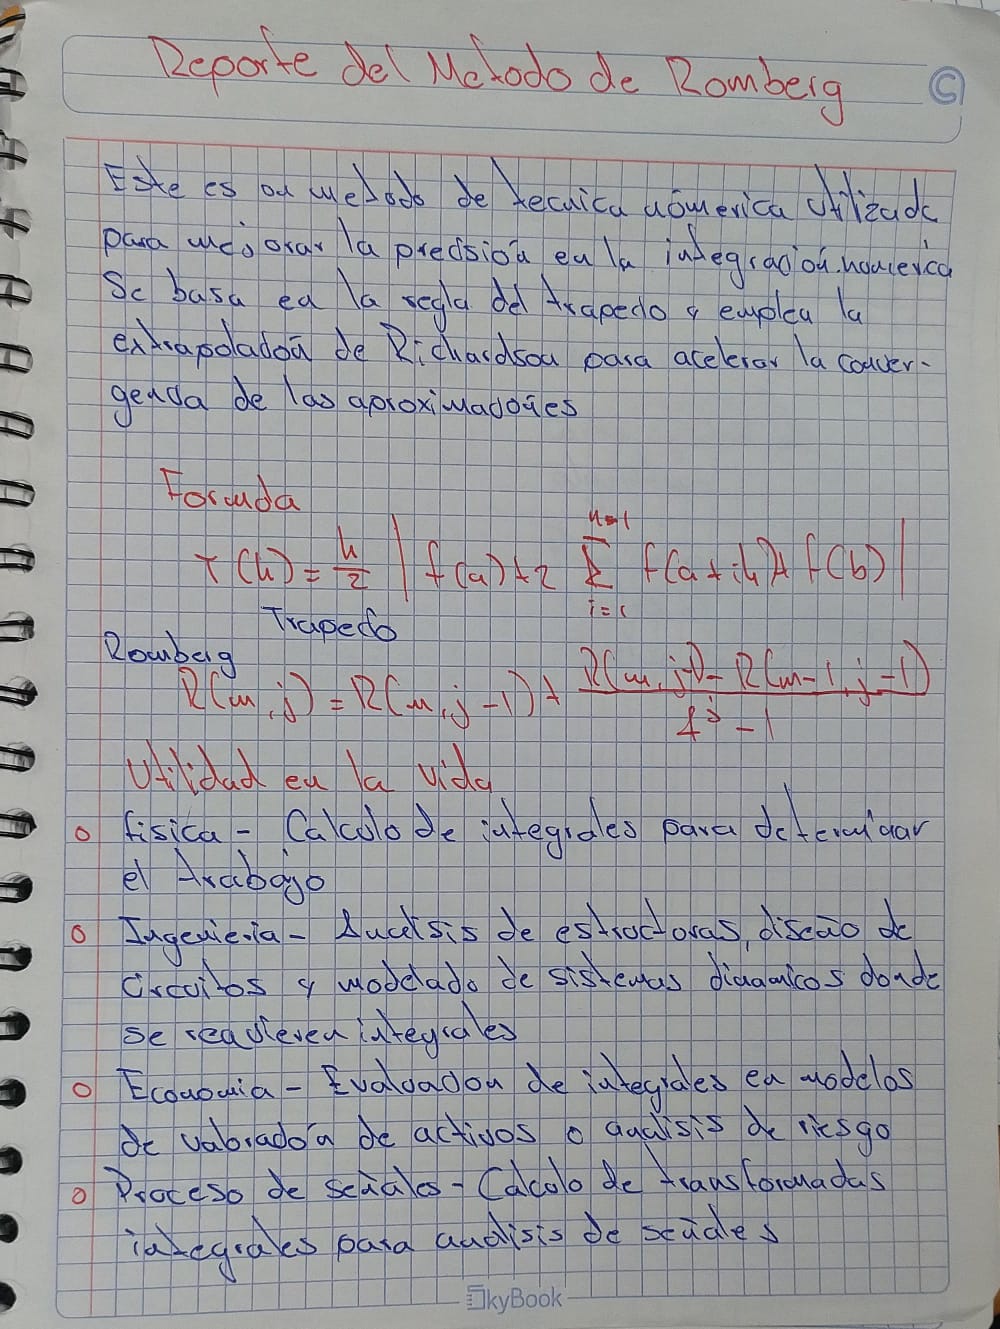 Reporte del Metodo de Romberg
Este es un metodo de tecnica númerica utilizada
para mejorar la precisión en la integración númerica
Se basa en la regla del trapecio y emplea la
extrapolación de Richardson para acelerar la conver-
gencia de las aproximaciónes
Formula
T(h) = h/2 | f(a) + 2 n-1 Σ i=1 f(a+ih) + f(b) |
Trapecio
Romberg
R(m,j) = R(m,j-1) + R(m,j-1) - R(m-1,j-1) / 4^j - 1
Utilidad en la vida
o fisica - Calculo de integrales para determinar
el trabajo
o Ingenieria - Analisis de estructuras, diseño de
circuitos y modelado de sistemas dinamicos donde
se requieren integrales
o Economia - Evaluacion de integrales en modelos
de valoración de activos o analisis de riesgo
o Proceso de señales - Calculo de transformadas
integrales para analisis de señales
SkyBook